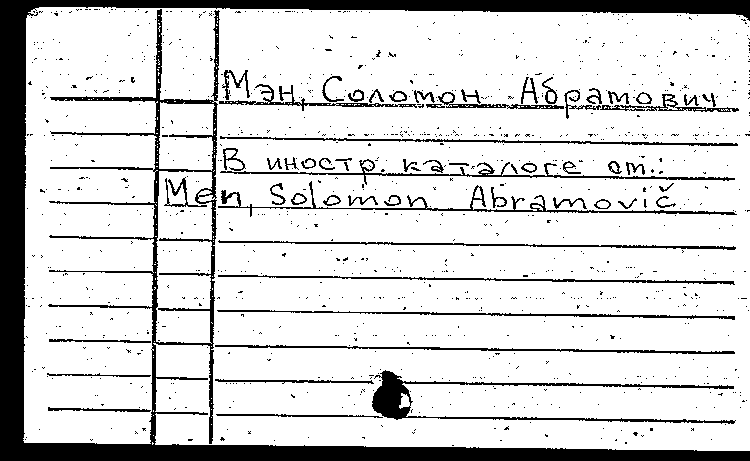 Мэн, Соломон Абрамович
В иностр. каталоге см.:
Men, Solomon Abramovič